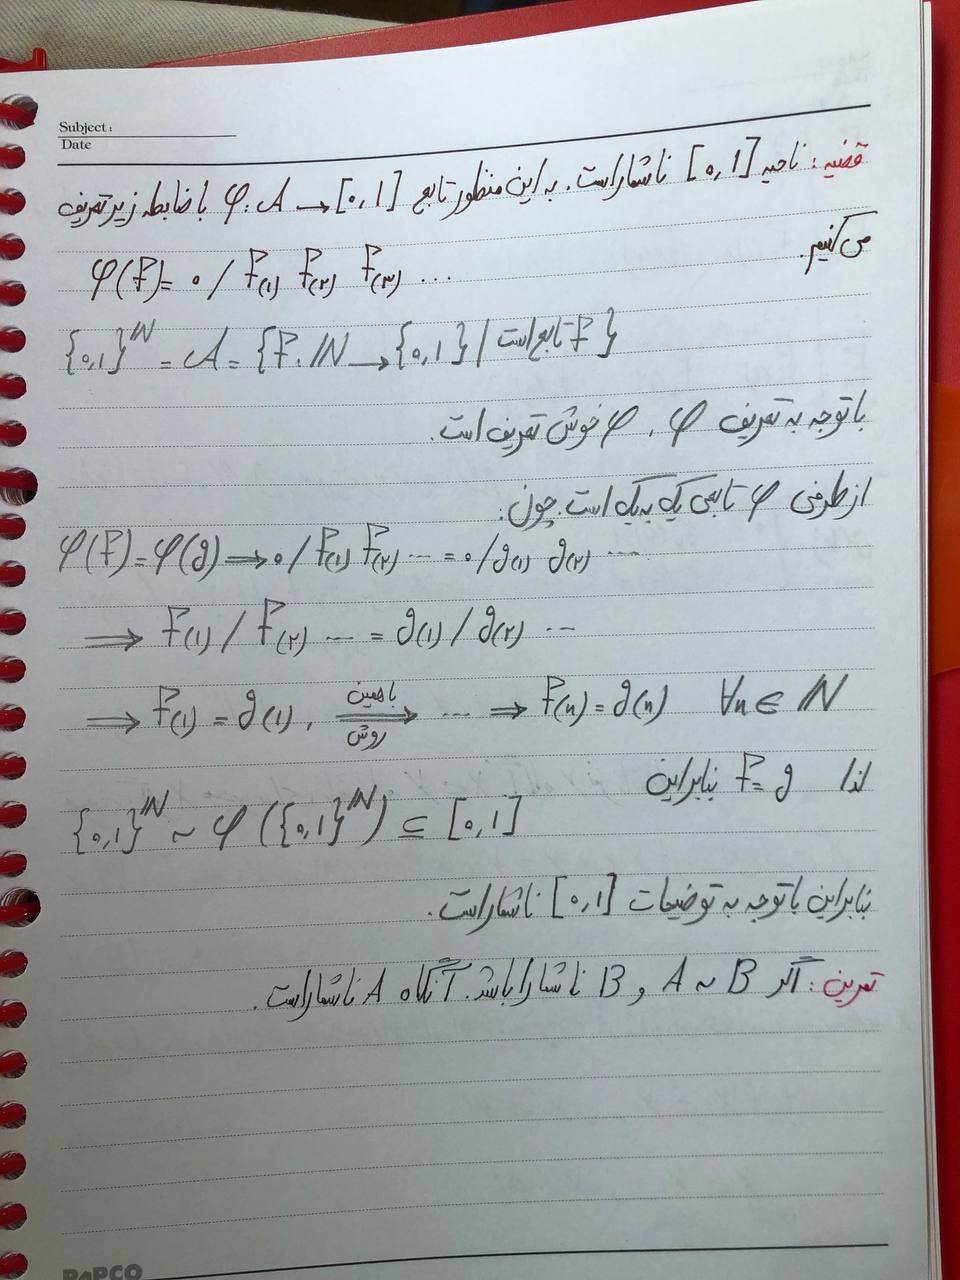 Subject:
Date
قضیه: ناحیه [۰,۱] ناشماراست. به این منظور تابع φ: A → [۰,۱] با ضابطه زیر تعریف
می کنیم.
φ(f) = ۰/f(۱) f(۲) f(۳) ...
{۰,۱}^ℕ = A = {f: ℕ → {۰,۱} | f تابع است}
با توجه به تعریف φ، φ خوش تعریف است.
از طرفی φ تابعی یک به یک است. چون:
φ(f) = φ(g) ⟹ ۰/f(۱) f(۲) ... = ۰/g(۱) g(۲) ...
⟹ f(۱)/f(۲) ... = g(۱)/g(۲) ...
⟹ f(۱) = g(۱), باهمین روش ⟹ ... ⟹ f(n) = g(n) ∀n ∈ ℕ
لذا f = g بنابراین
{۰,۱}^ℕ ~ φ({۰,۱}^ℕ) ⊆ [۰,۱]
بنابراین با توجه به توضیحات [۰,۱] ناشماراست.
تمرین: اگر A ~ B و B ناشمارا باشد. آنگاه A ناشماراست.
PAPCO